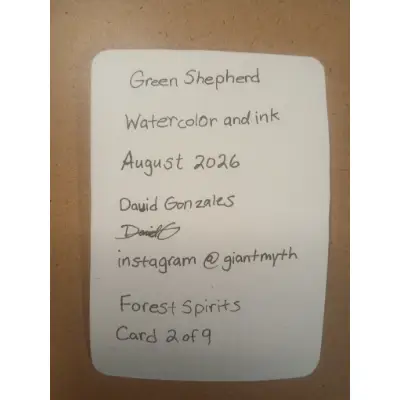 Green Shepherd
Watercolor and ink
August 2026
David Gonzales
DavidG
instagram @giantmyth
Forest Spirits
Card 2 of 9